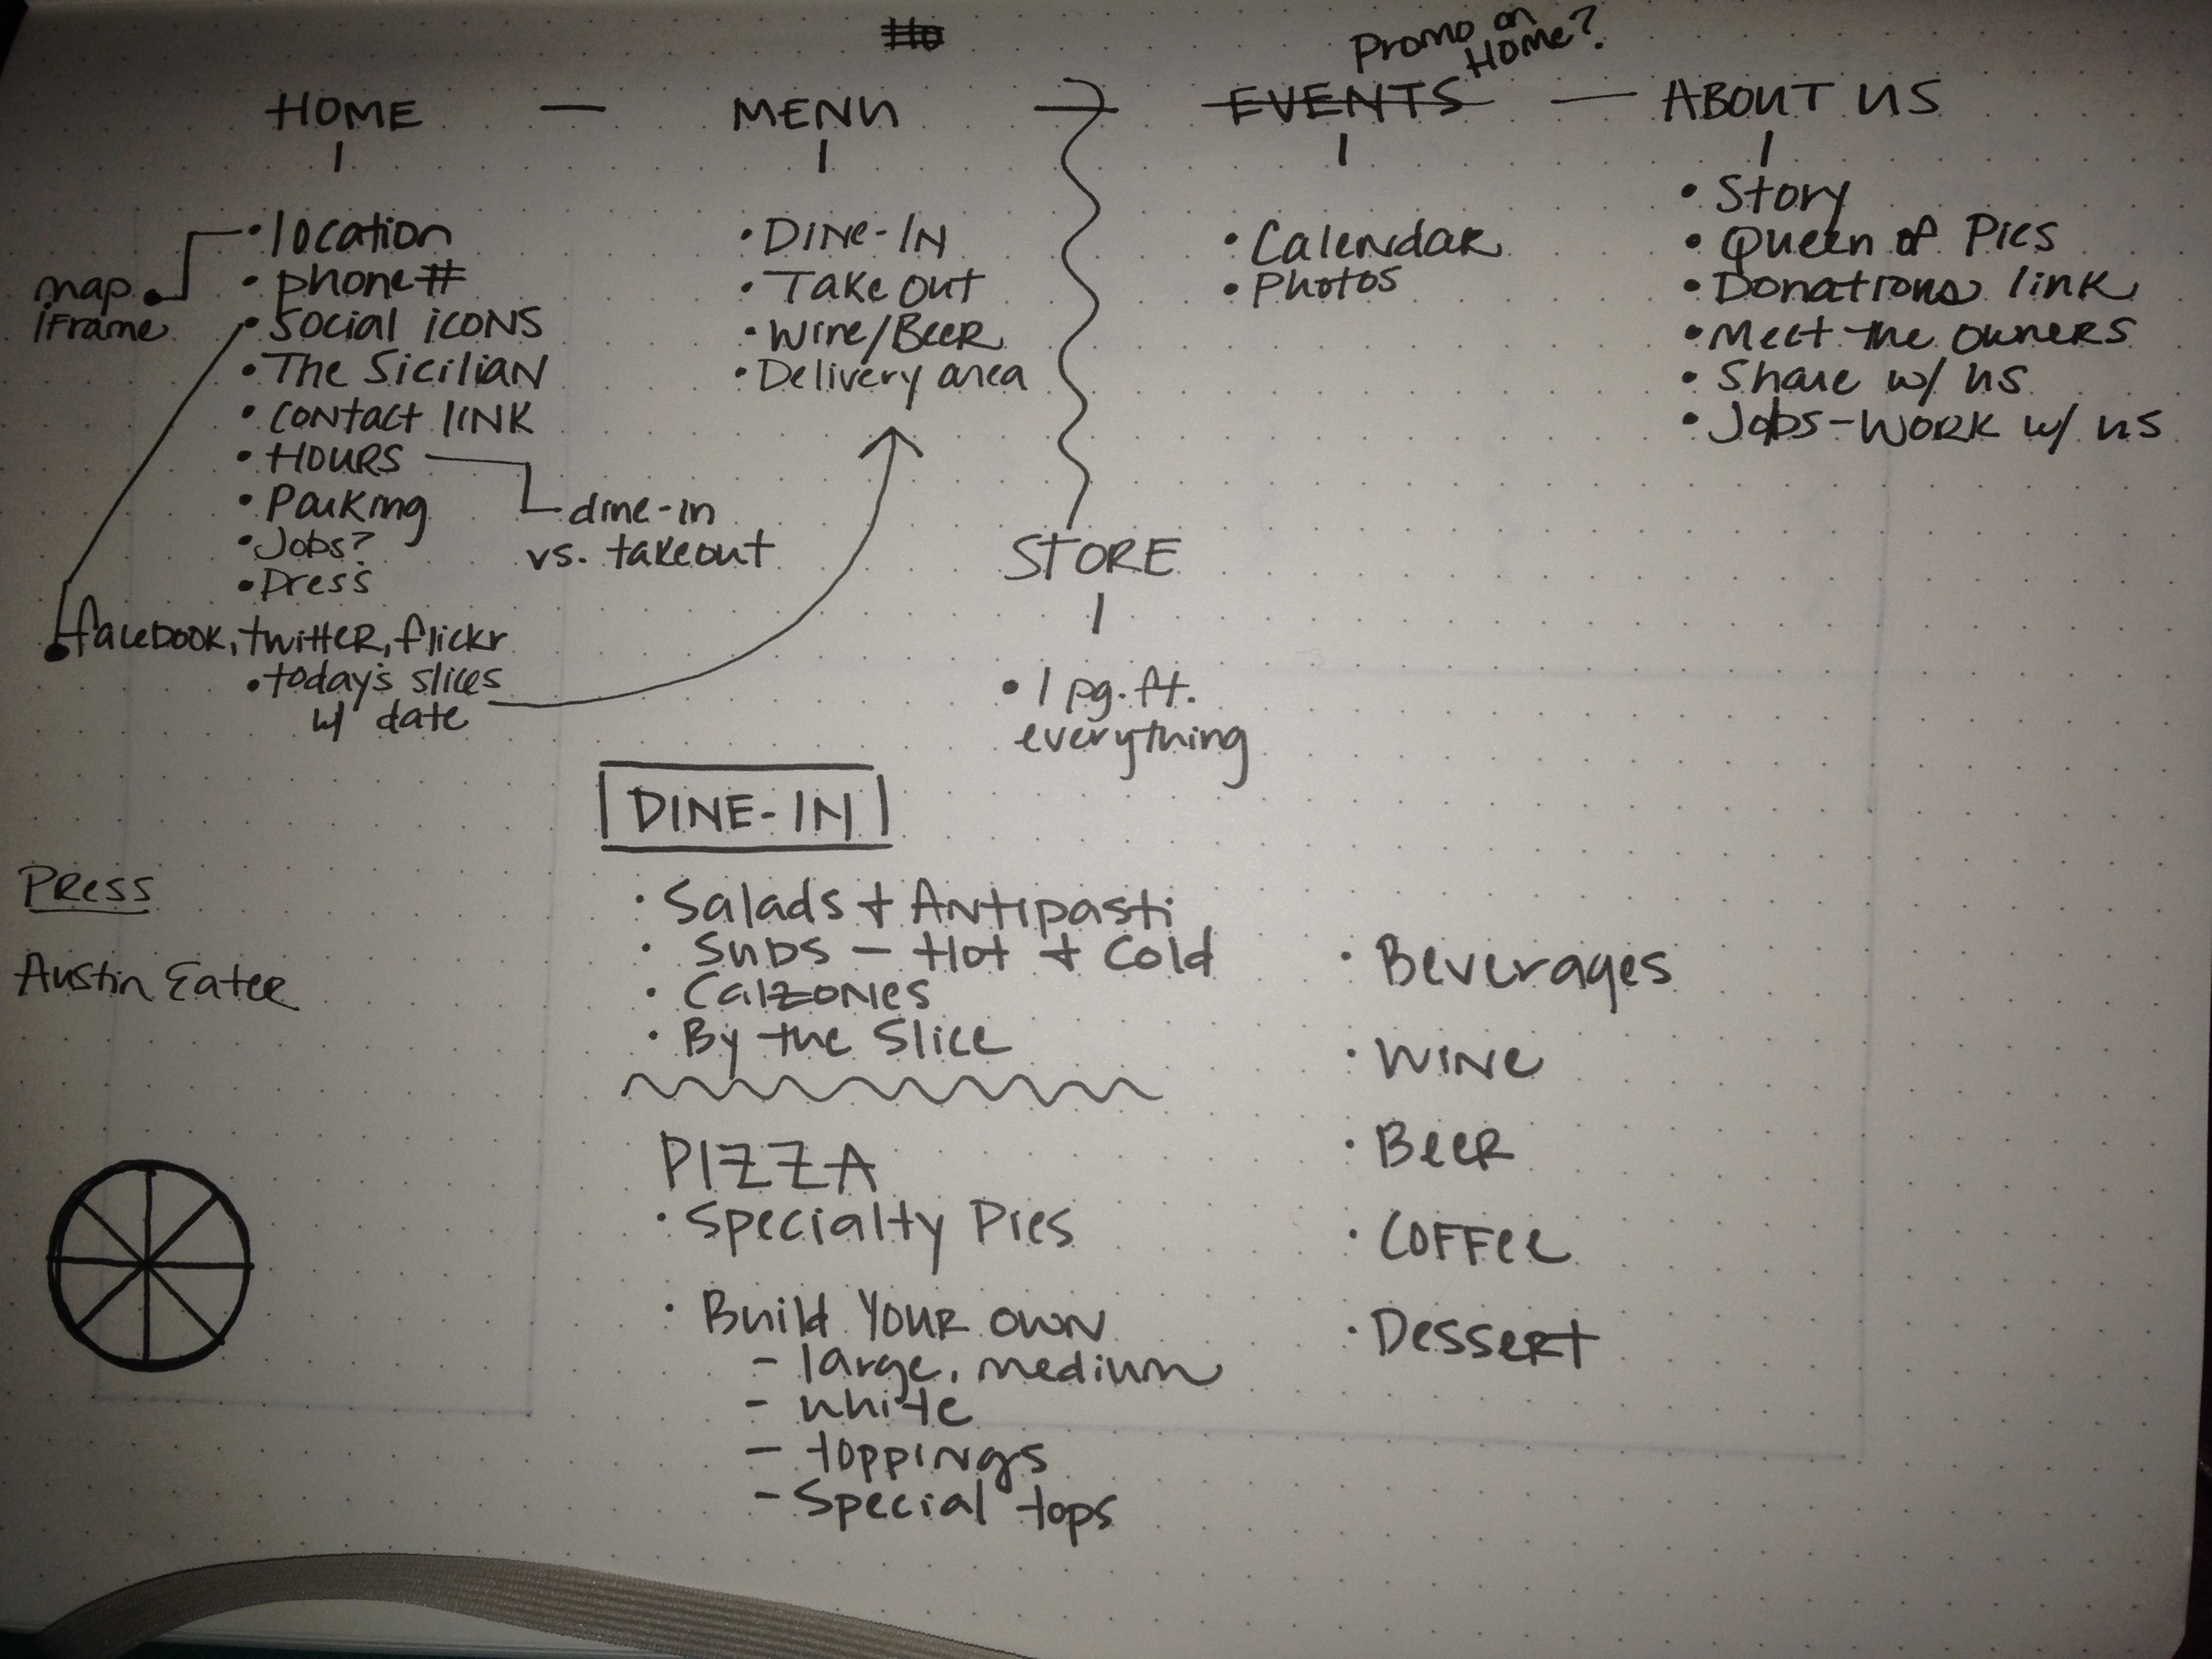 Promo on
Home?
HOME — MENU — EVENTS — ABOUT US
• location
• phone #
• Social icons
• The Sicilian
• contact link
• Hours
• Parking
• Jobs?
• Press
map
iFrame
dine-in
vs. takeout
facebook, twitter, flickr
• today's slices
w/ date
• Dine-In
• Take Out
• Wine/Beer
• Delivery area
STORE
• 1 pg. ft.
everything
• Calendar
• Photos
• Story
• Queen of Pies
• Donations link
• Meet the owners
• Share w/ us
• Jobs - Work w/ us
DINE-IN
• Salads + Antipasti
• Subs — Hot + Cold
• Calzones
• By the Slice
PIZZA
• Specialty Pies
• Build Your Own
- large, medium
- white
- toppings
- Special tops
• Beverages
• Wine
• Beer
• Coffee
• Dessert
Press
Austin Eater